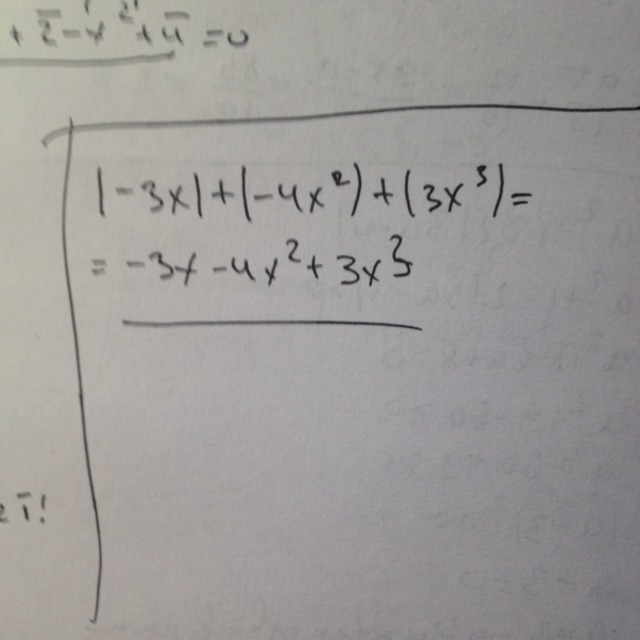 + 2̅ - x² + 4̅ = 0
(-3x) + (-4x²) + (3x³) =
= -3x - 4x² + 3x³